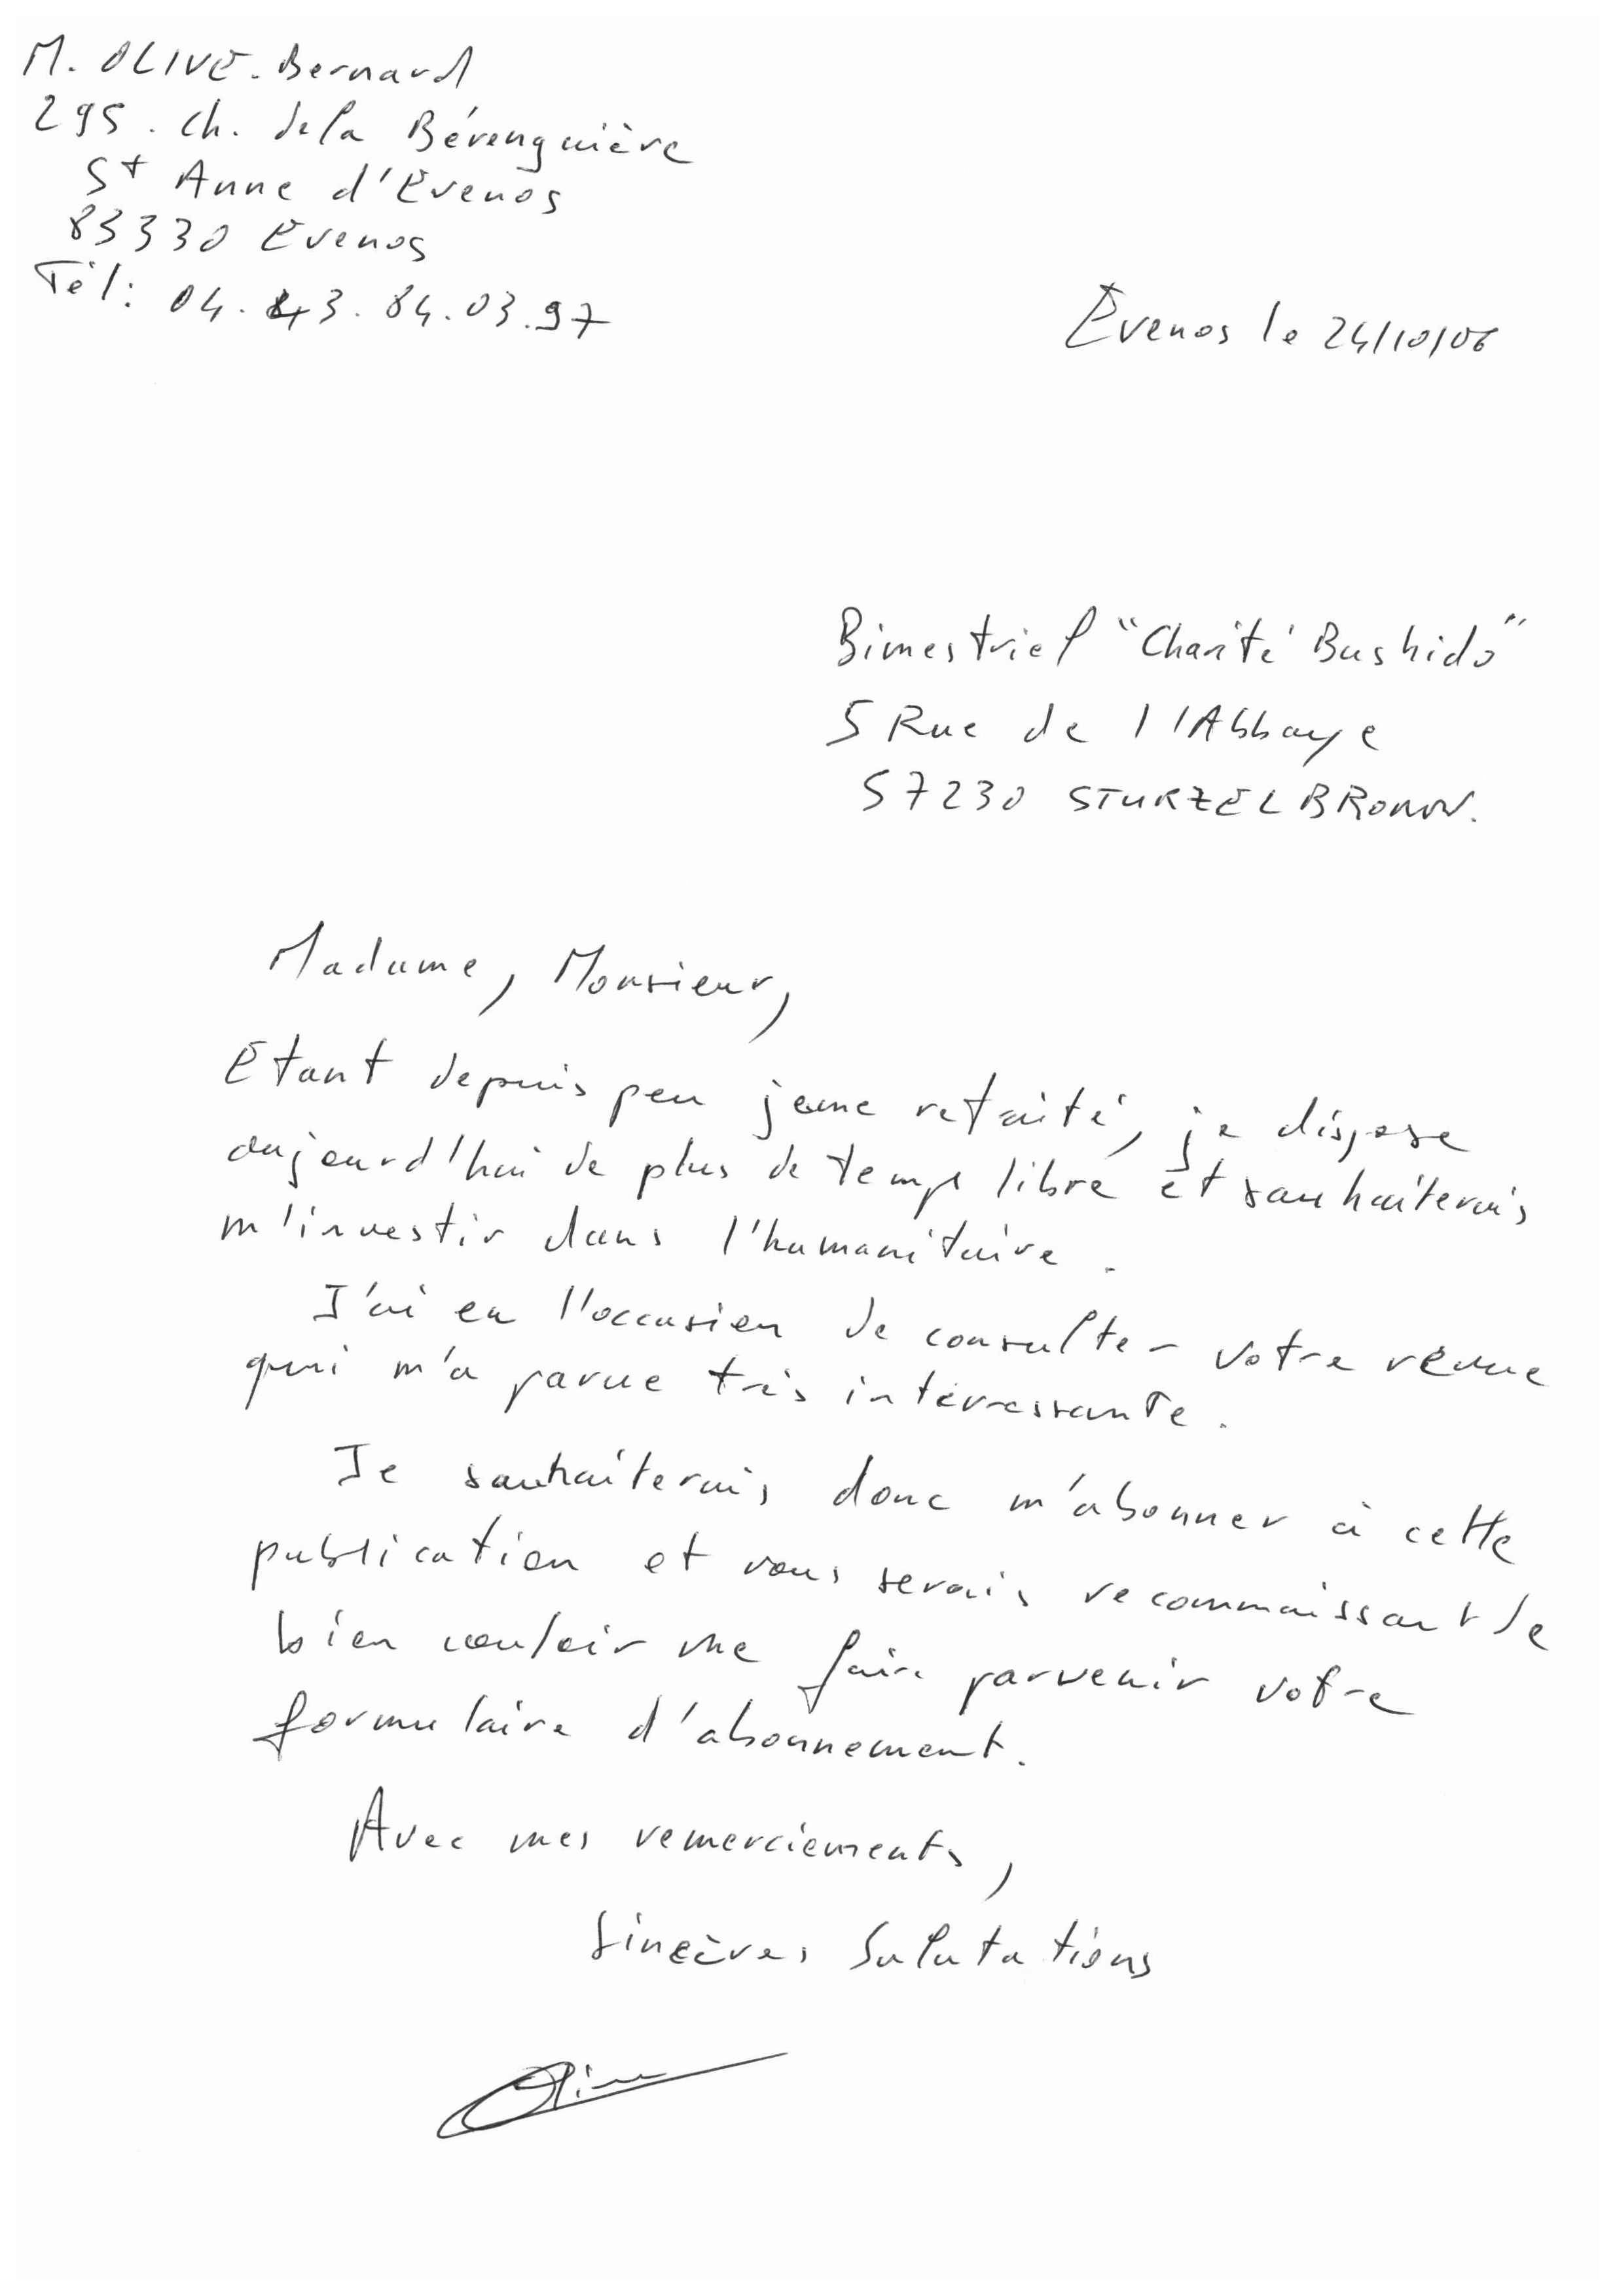 M. OLIVE. Bernard
295. ch. de la Bérenguière
St Anne d'Evenos
83330 Evenos
Tél: 04.43.84.03.97
Evenos le 24/10/06
Bimestriel "Charité Bushido"
5 Rue de l'Abbaye
57230 STURZELBRONN.
Madame, Monsieur,
Etant depuis peu jeune retraité, je dispose
aujourd'hui de plus de temps libre et souhaiterais
m'investir dans l'humanitaire.
J'ai eu l'occasion de consulter votre revue
qui m'a parue très intérressante.
Je souhaiterais donc m'abonner à cette
publication et vous serais recommaissant de
bien vouloir me faire parvenir votre
formulaire d'abonnement.
Avec mes remerciements,
Sincères Salutations